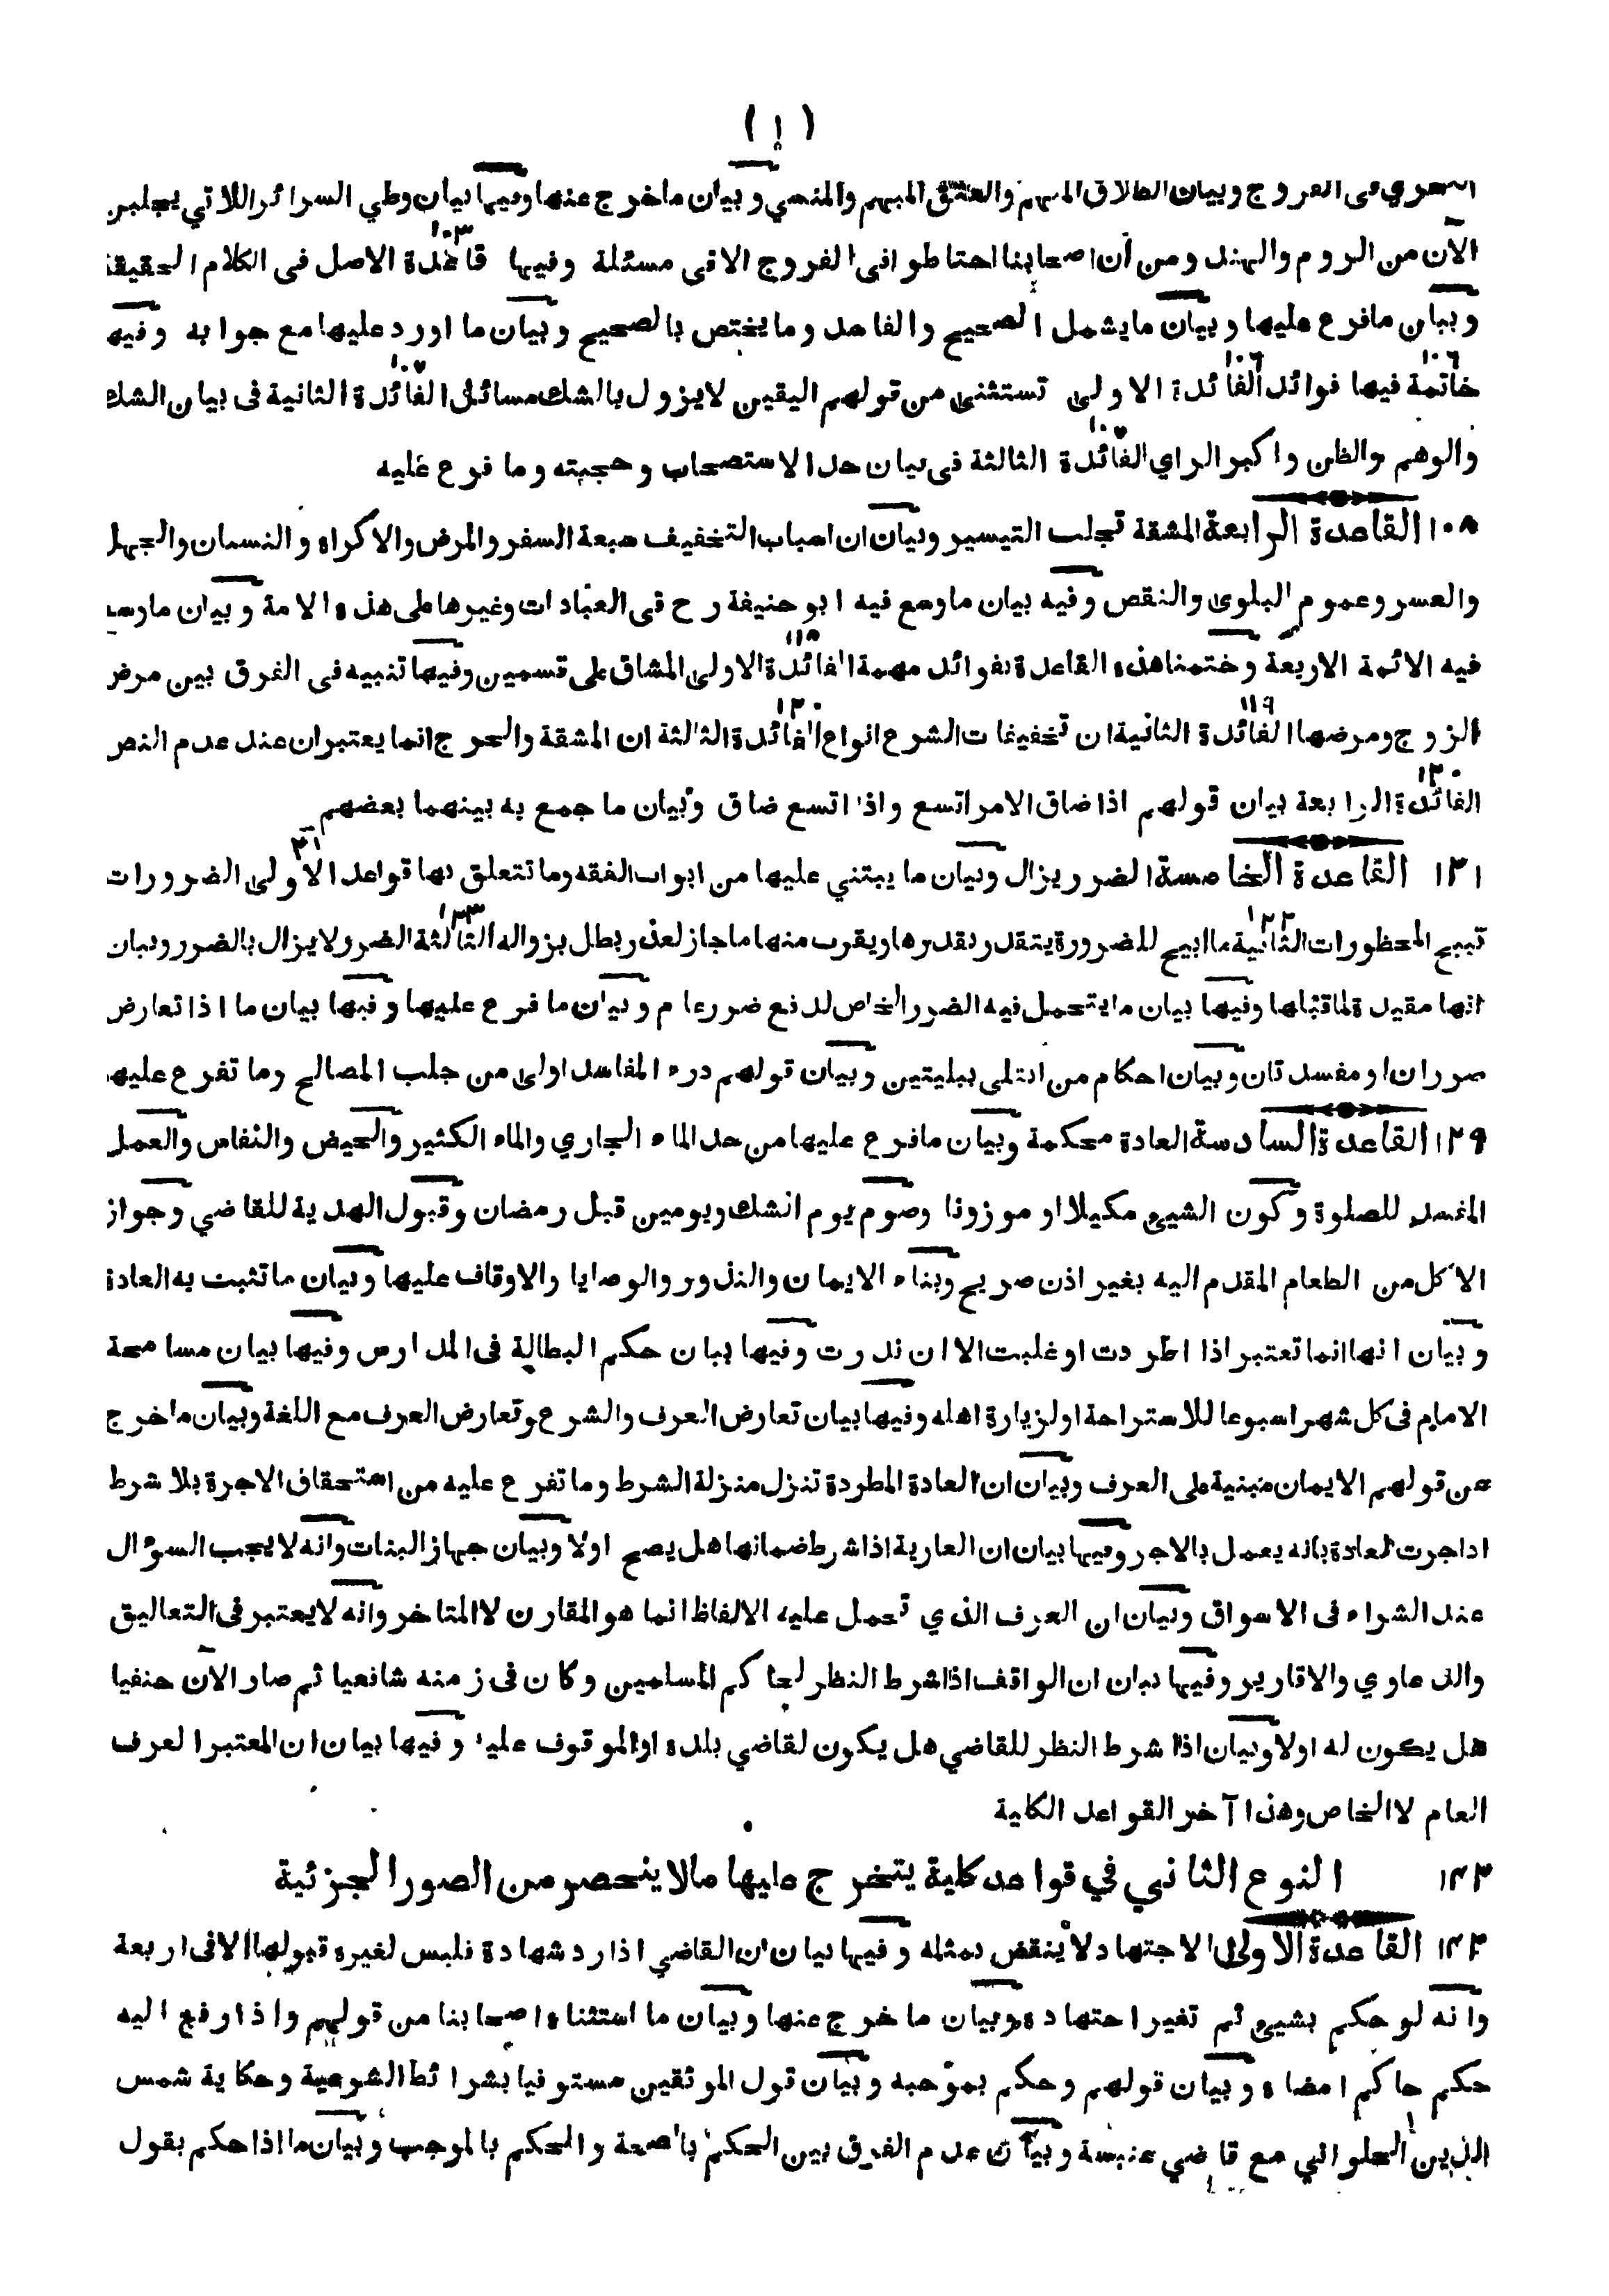 ( ١ )
التحري في الفروج وبيان الطلاق المبهم والعتق المبهم والمنسي وبيان ماخرج عنها وفيها بيان وطي السرائر اللاتي يجلبن
الآن من الروم والهند ومن أن اصحابنا احتاطوا في الفروج الا في مسئلة وفيها ١٠٣ قاعدة الاصل في الكلام الحقيقة
وبيان مافرع عليها وبيان مايشمل الصحيح والفاسد ومايختص بالصحيح وبيان ما اورد عليها مع جوابه وفيها
١٠٦ خاتمة فيها فوائد ١٠٦ الفائدة الاولى تستثنى من قولهم اليقين لايزول بالشك مسائل ١٠٧ الفائدة الثانية في بيان الشك
والوهم والظن واكبر الراي ١٠٧ الفائدة الثالثة في بيان حد الاستصحاب وحجيته وما فرع عليه
١٠٨ القاعدة الرابعة المشقة تجلب التيسير وبيان ان اسباب التخفيف سبعة السفر والمرض والاكراه والنسيان والجهل
والعسر وعموم البلوى والنقص وفيه بيان ماوسع فيه ابو حنيفة رح في العبادات وغيرها على هذه الامة وبيان ماوسع
فيه الائمة الاربعة وختمنا هذه القاعدة بفوائد مهمة ١١٨ الفائدة الاولى المشاق على قسمين وفيها تنبيه في الفرق بين مرض
الزوج ومرضها ١١٩ الفائدة الثانية ان تخفيفات الشرع انواع ١٢٠ الفائدة الثالثة ان المشقة والحرج انما يعتبران عند عدم النص
١٢٠ الفائدة الرابعة بيان قولهم اذا ضاق الامر اتسع واذا اتسع ضاق وبيان ما جمع به بينهما بعضهم
١٢١ القاعدة الخامسة الضرر يزال وبيان ما يبتني عليها من ابواب الفقه وما تتعلق بها قواعد الاولى الضرورات
تبيح المحظورات ١٢٢ الثانية ما ابيح للضرورة يتقدر بقدرها ويقرب منها ماجاز لعذر بطل بزواله ١٢٣ الثالثة الضرر لايزال بالضرر وبيان
انها مقيدة لما قبلها وفيها بيان مايتحمل فيه الضرر الخاص لدفع ضرر عام وبيان ما فرع عليها وفيها بيان ما اذا تعارض
ضرران او مفسدتان وبيان احكام من ابتلى ببليتين وبيان قولهم درء المفاسد اولى من جلب المصالح وما تفرع عليها
١٢٩ القاعدة السادسة العادة محكمة وبيان مافرع عليها من حد الماء الجاري والماء الكثير والحيض والنفاس والعمل
المفسد للصلوة وكون الشيئ مكيلا او موزونا وصوم يوم الشك ويومين قبل رمضان وقبول الهدية للقاضي وجواز
الاكل من الطعام المقدم اليه بغير اذن صريح وبناء الايمان والنذور والوصايا والاوقاف عليها وبيان ماتثبت به العادة
وبيان انها انما تعتبر اذا اطردت او غلبت الا ان ندرت وفيها بيان حكم البطالة في المدارس وفيها بيان مسامحة
الامام في كل شهر اسبوعا للاستراحة او لزيارة اهله وفيها بيان تعارض العرف والشرع وتعارض العرف مع اللغة وبيان ماخرج
عن قولهم الايمان مبنية على العرف وبيان ان العادة المطردة تنزل منزلة الشرط وما تفرع عليه من استحقاق الاجرة بلا شرط
اذا جرت العادة بانه يعمل بالاجر وفيها بيان ان العارية اذا شرط ضمانها هل يصح اولا وبيان جهاز البنات وانه لا يجب السوال
عند الشراء في الاسواق وبيان ان العرف الذي تحمل عليه الالفاظ انما هو المقارن لا المتاخر وانه لايعتبر في التعاليق
والدعاوي والاقارير وفيها بيان ان الواقف اذا شرط النظر لحاكم المسلمين وكان في زمنه شافعيا ثم صار الآن حنفيا
هل يكون له اولا وبيان اذا شرط النظر للقاضي هل يكون لقاضي بلده او الموقوف عليه وفيها بيان ان المعتبر العرف
العام لا الخاص وهذا آخر القواعد الكلية
١٤٣ النوع الثاني في قواعد كلية يتخرج عليها مالا ينحصر من الصور الجزئية
١٤٣ القاعدة الاولى الاجتهاد لا ينقض بمثله وفيها بيان ان القاضي اذا رد شهادة فليس لغيره قبولها الا في اربعة
وانه لو حكم بشيئ ثم تغير اجتهاده وبيان ما خرج عنها وبيان ما استثناه اصحابنا من قولهم واذا رفع اليه
حكم حاكم امضاه وبيان قولهم وحكم بموجبه وبيان قول الموثقين مستوفيا بشرائط الشرعية وحكاية شمس
الدين الحلواني مع قاضي عنبسة وبيان عدم الفرق بين الحكم بالصحة والحكم بالموجب وبيان ما اذا حكم بقول